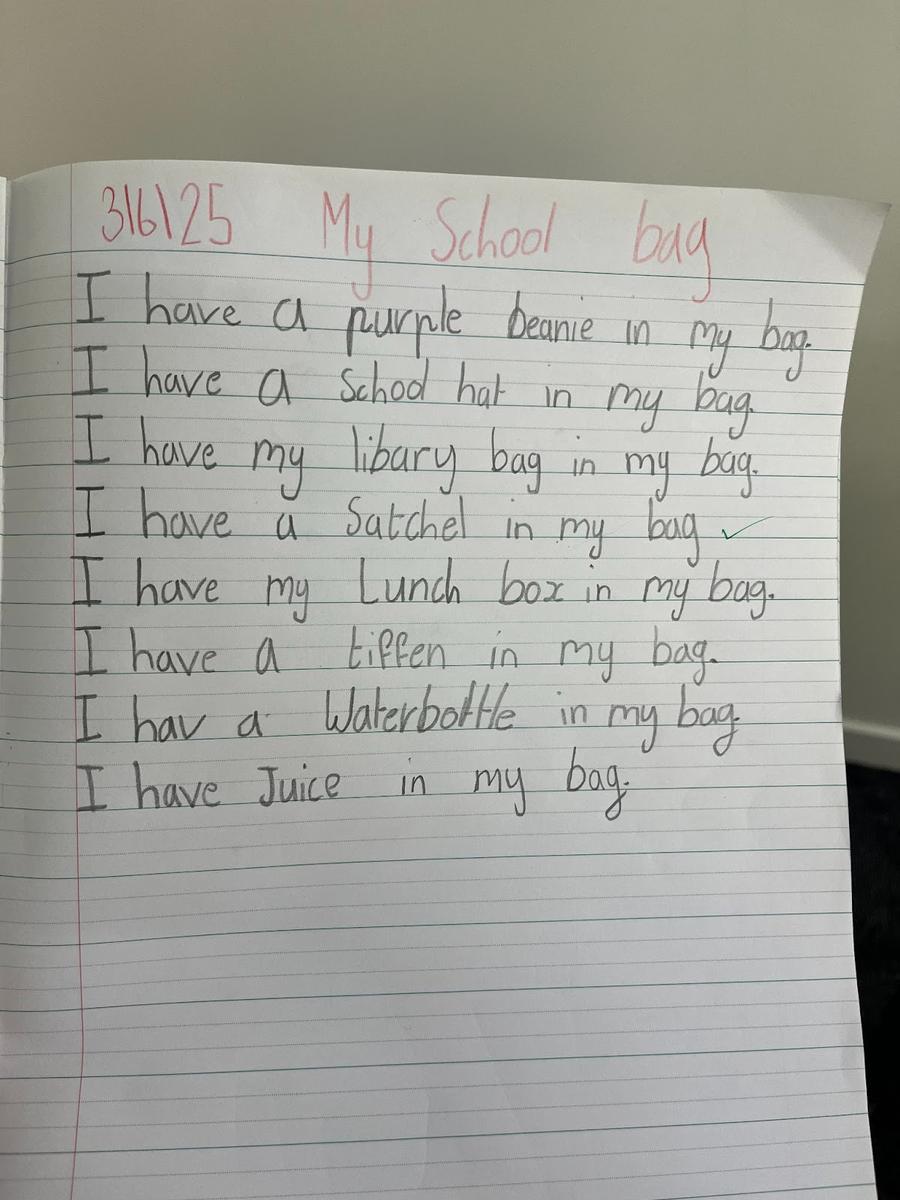 3/6/25 My School bag
I have a purple beanie in my bag.
I have a School hat in my bag.
I have my libary bag in my bag.
I have a Satchel in my bag
I have my Lunch box in my bag.
I have a tiffen in my bag.
I hav a Waterbottle in my bag.
I have Juice in my bag.